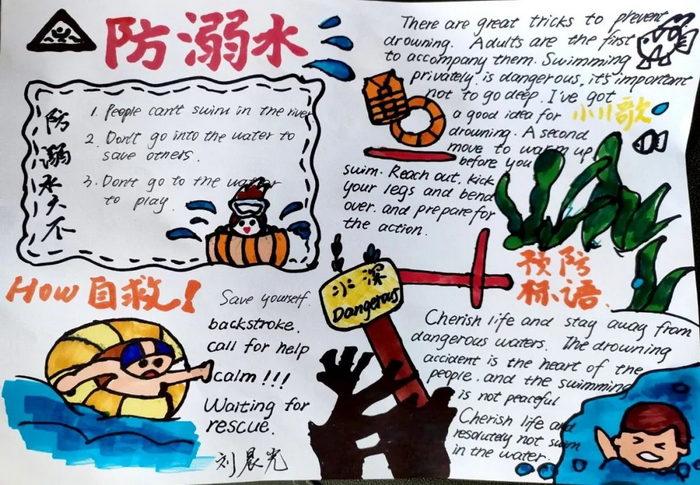 防溺水
防溺水六不
1. People can't swim in the river
2. Don't go into the water to
save others.
3. Don't go to the water
to play.
There are great tricks to prevent
drowning. Adults are the first
to accompany them. Swimming
privately is dangerous, it's important
not to go deep. I've got
a good idea for
小儿歌
drowning. A second
move to warm up
before you
swim. Reach out, kick
your legs and bend
over. and prepare for
the action.
How 自救!
Save yourself.
backstroke.
call for help
calm!!!
Waiting for
rescue.
刘晨光
水深
Dangerous
预防
标语.
Cherish life and stay away from
dangerous waters. The drowning
accident is the heart of the
people. and the swimming
is not peaceful
Cherish life and
resolutely not swim
in the water.